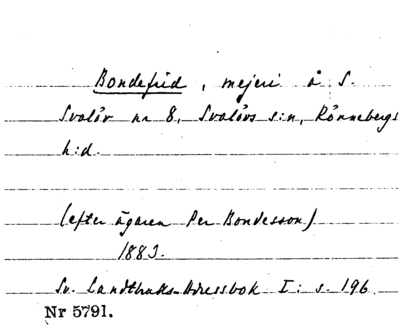 Bondefrid, mejeri å S.
Svalöv nr 8, Svalövs s:n, Rönnebergs
h:d.
(efter ägaren Per Bondesson)
1883.
Sv. Landtbruks-Adressbok I: s. 196.
Nr 5791.